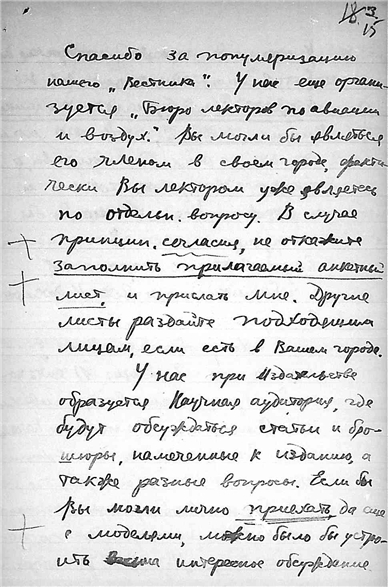 3.
15
Спасибо за популяризацию
нашего „Вестника“. У нас еще органи-
зуется „Бюро лекторов по авиации
и воздух.“ Вы могли бы являться
его членом в своем городе, факти-
чески Вы лектором уже являетесь
по отдельн. вопросу. В случае
принцип. согласия, не откажите
заполнить прилагаемый анкетный
лист, и прислать мне. Другие
листы раздайте подходящим
лицам, если есть в Вашем городе.
У нас при Издательстве
образуется Научная аудитория, где
будут обсуждаться статьи и бро-
шюры, намеченные к изданию, а
также разные вопросы. Если бы
Вы могли лично приехать, да еще
с моделями, можно было бы устро-
ить интересное обсуждение.